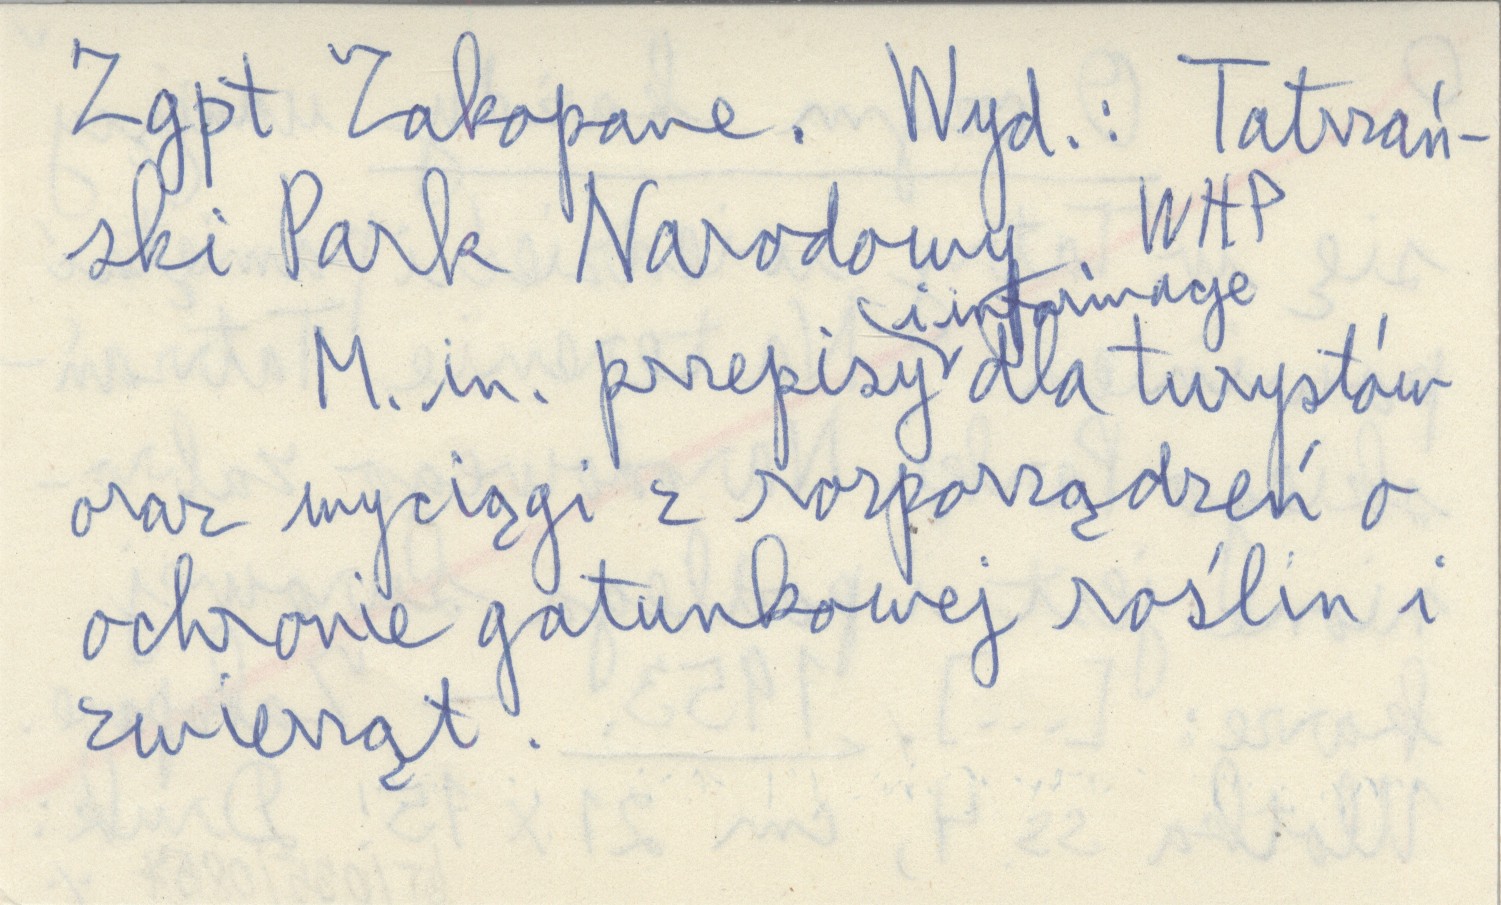 Zgpt Zakopane. Wyd.: Tatrzań-
ski Park Narodowy. WHP
i informacje
M. in. przepisy dla turystów
oraz wyciągi z rozporządzeń o
ochronie gatunkowej roślin i
zwierząt.